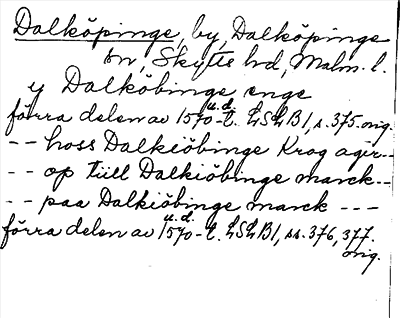 Dalköpinge, by, Dalköpinge
sn, Skytts hd, Malm. l.
y Dalköbinge enge
u. d.
förra delen av 1570-t. LSLB1, s. 375. orig.
-- hoss Dalkiöbinge Krog agir --
-- op tiill Dalkiöbinge marck --
-- paa Dalkiöbinge marck ---
u. d.
förra delen av 1570-t. LSLB1, ss. 376, 377.
orig.